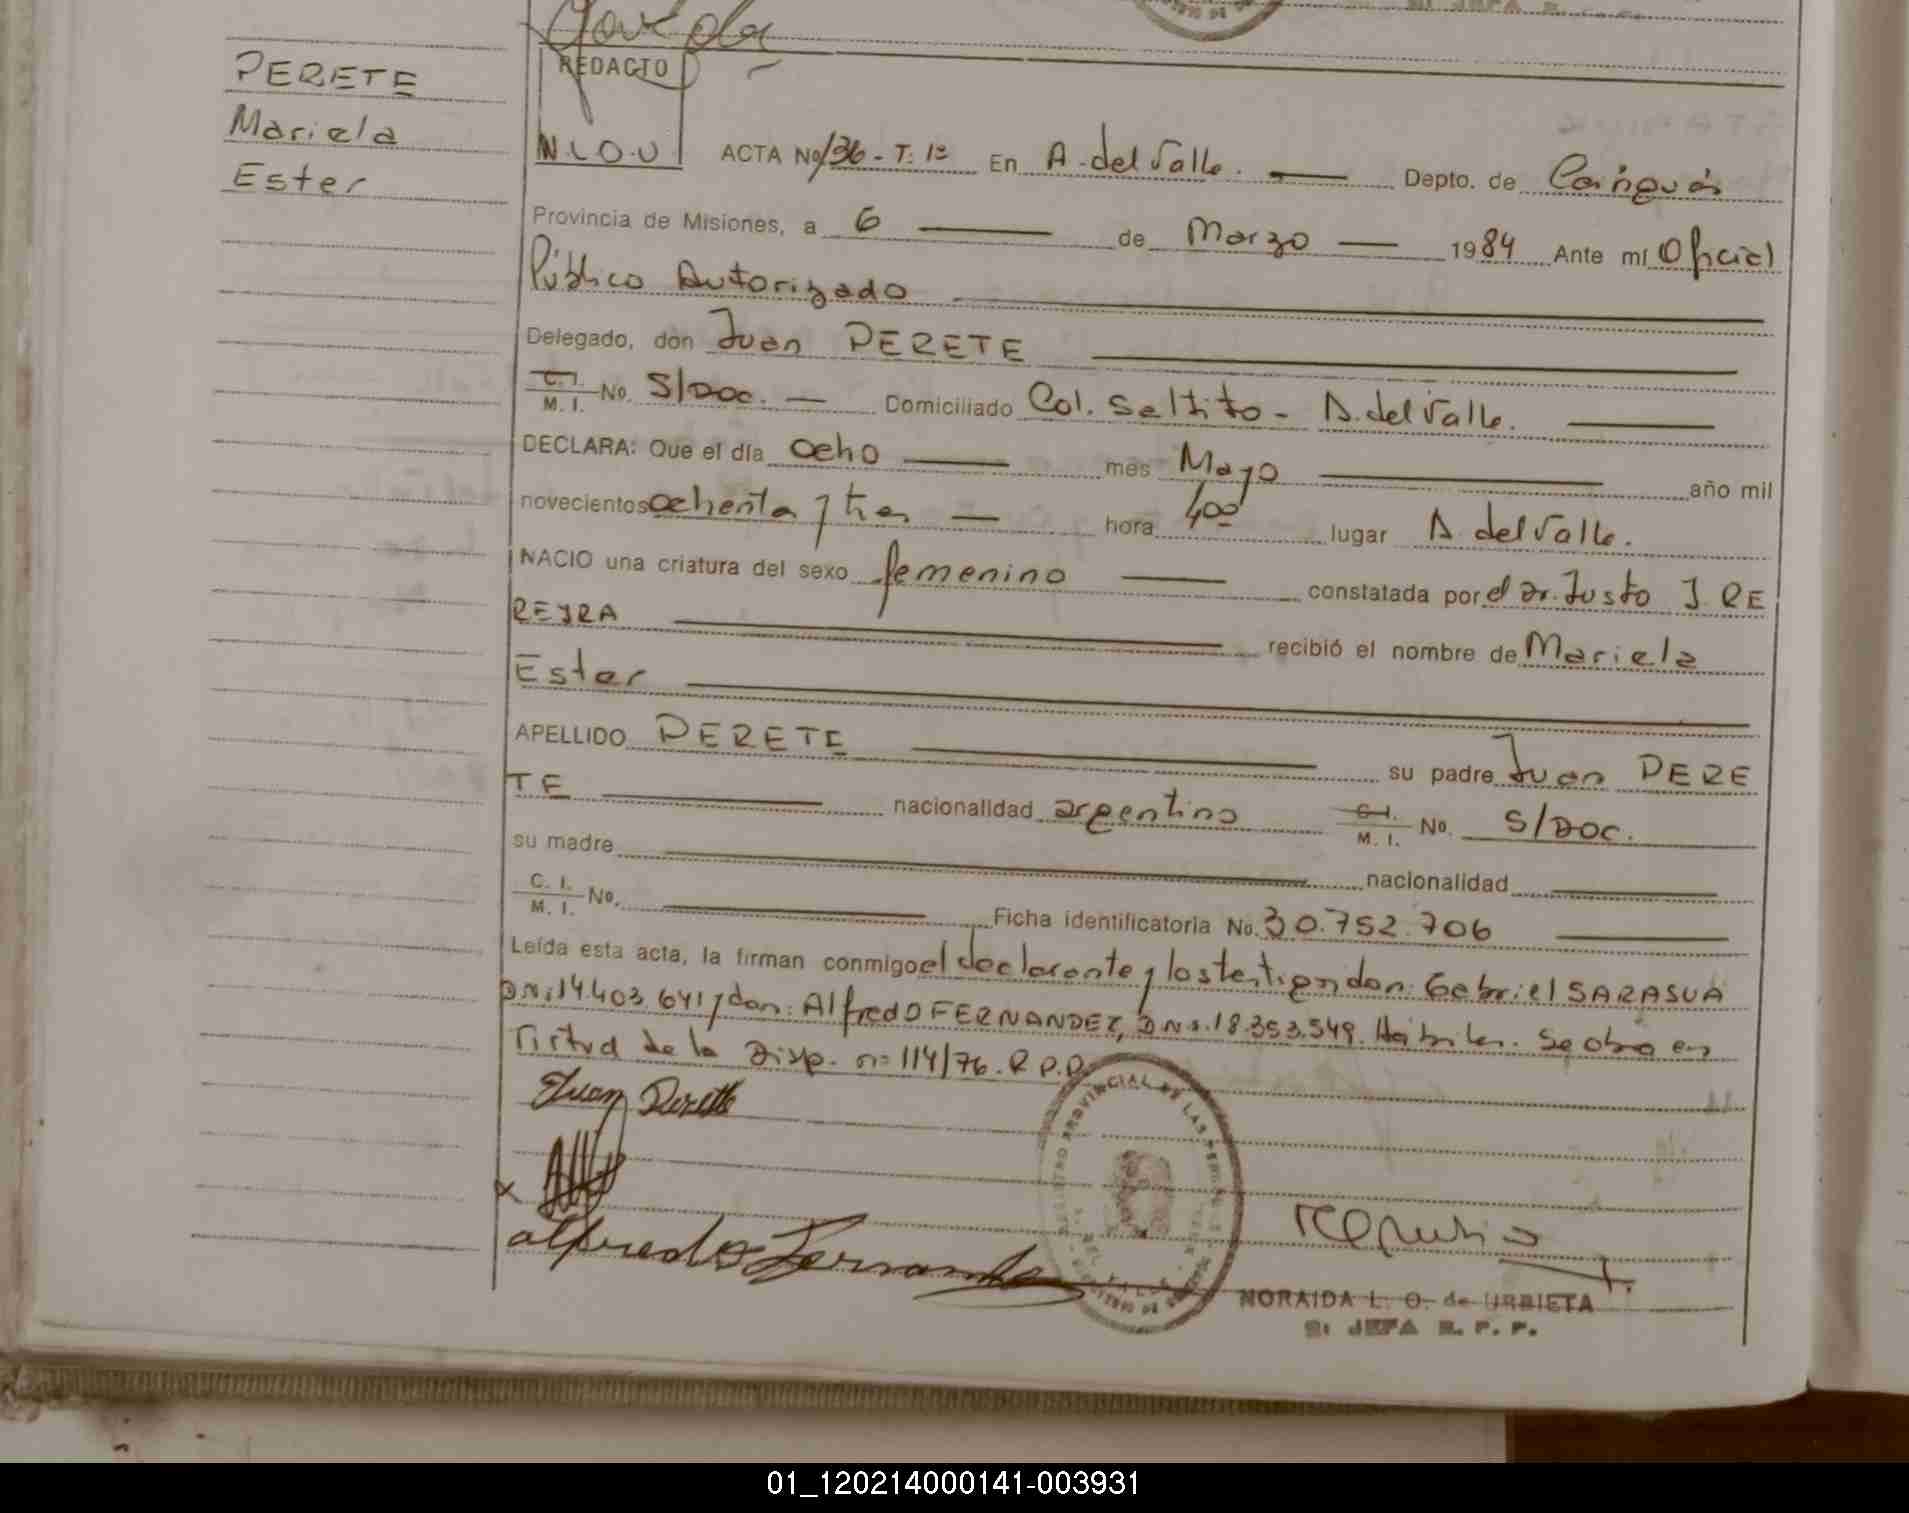 PERETE
Mariela
Ester
REDACTO
N.L.O.U
ACTA No 136 - T: 1º En A. del Valle. Depto. de Cainguás
Provincia de Misiones, a 6 de Marzo 1984 Ante mí Oficial
Público Autorizado
Delegado, don Juan PERETE
C. I. / M. I. No. S/Doc. Domiciliado Col. Saltito - A. del Valle.
DECLARA: Que el día ocho mes Mayo año mil
novecientos ochenta y tres hora 4,00 lugar A. del Valle.
NACIO una criatura del sexo femenino constatada por el Dr. Justo J. RE
REYRA recibió el nombre de Mariela
Ester
APELLIDO PERETE su padre Juan PERE
TE nacionalidad argentino C. I. / M. I. No. S/DOC.
su madre nacionalidad
C. I. / M. I. No. Ficha identificatoria No. 30.752.706
Leída esta acta, la firman conmigo el declarante y los testigos don: Gabriel SARASUA
DNI 14.403.641 y don: Alfredo FERNANDEZ, DNI. 18.353.549. Hábiles. Se obró en
Virtud de la Disp. nº 114/76. R.P.P.
Juan Perette
x
alfredo Fernandez
REGISTRO PROVINCIAL DE LAS PERSONAS
NORAIDA L. O. de URBIETA
JEFA R. P. P.
01_120214000141-003931